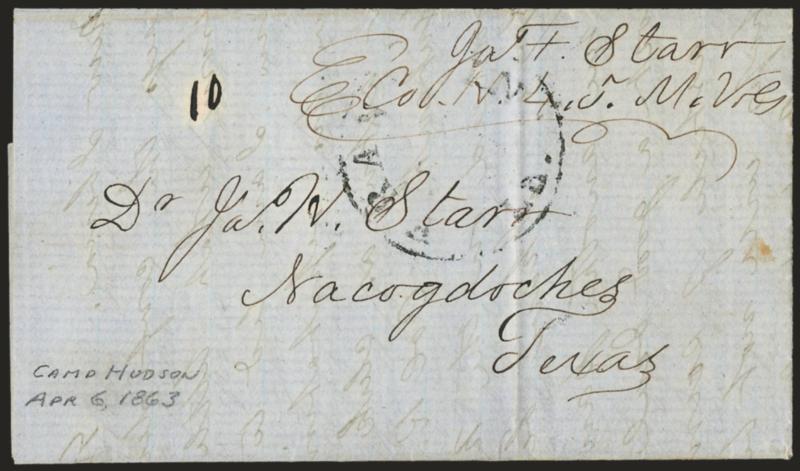 Jas. F. Starr
Co. N. 4.
10
Dr Jas. H. Starr
Nacogdoches
Texas
CAMP HUDSON
APR 6, 1863